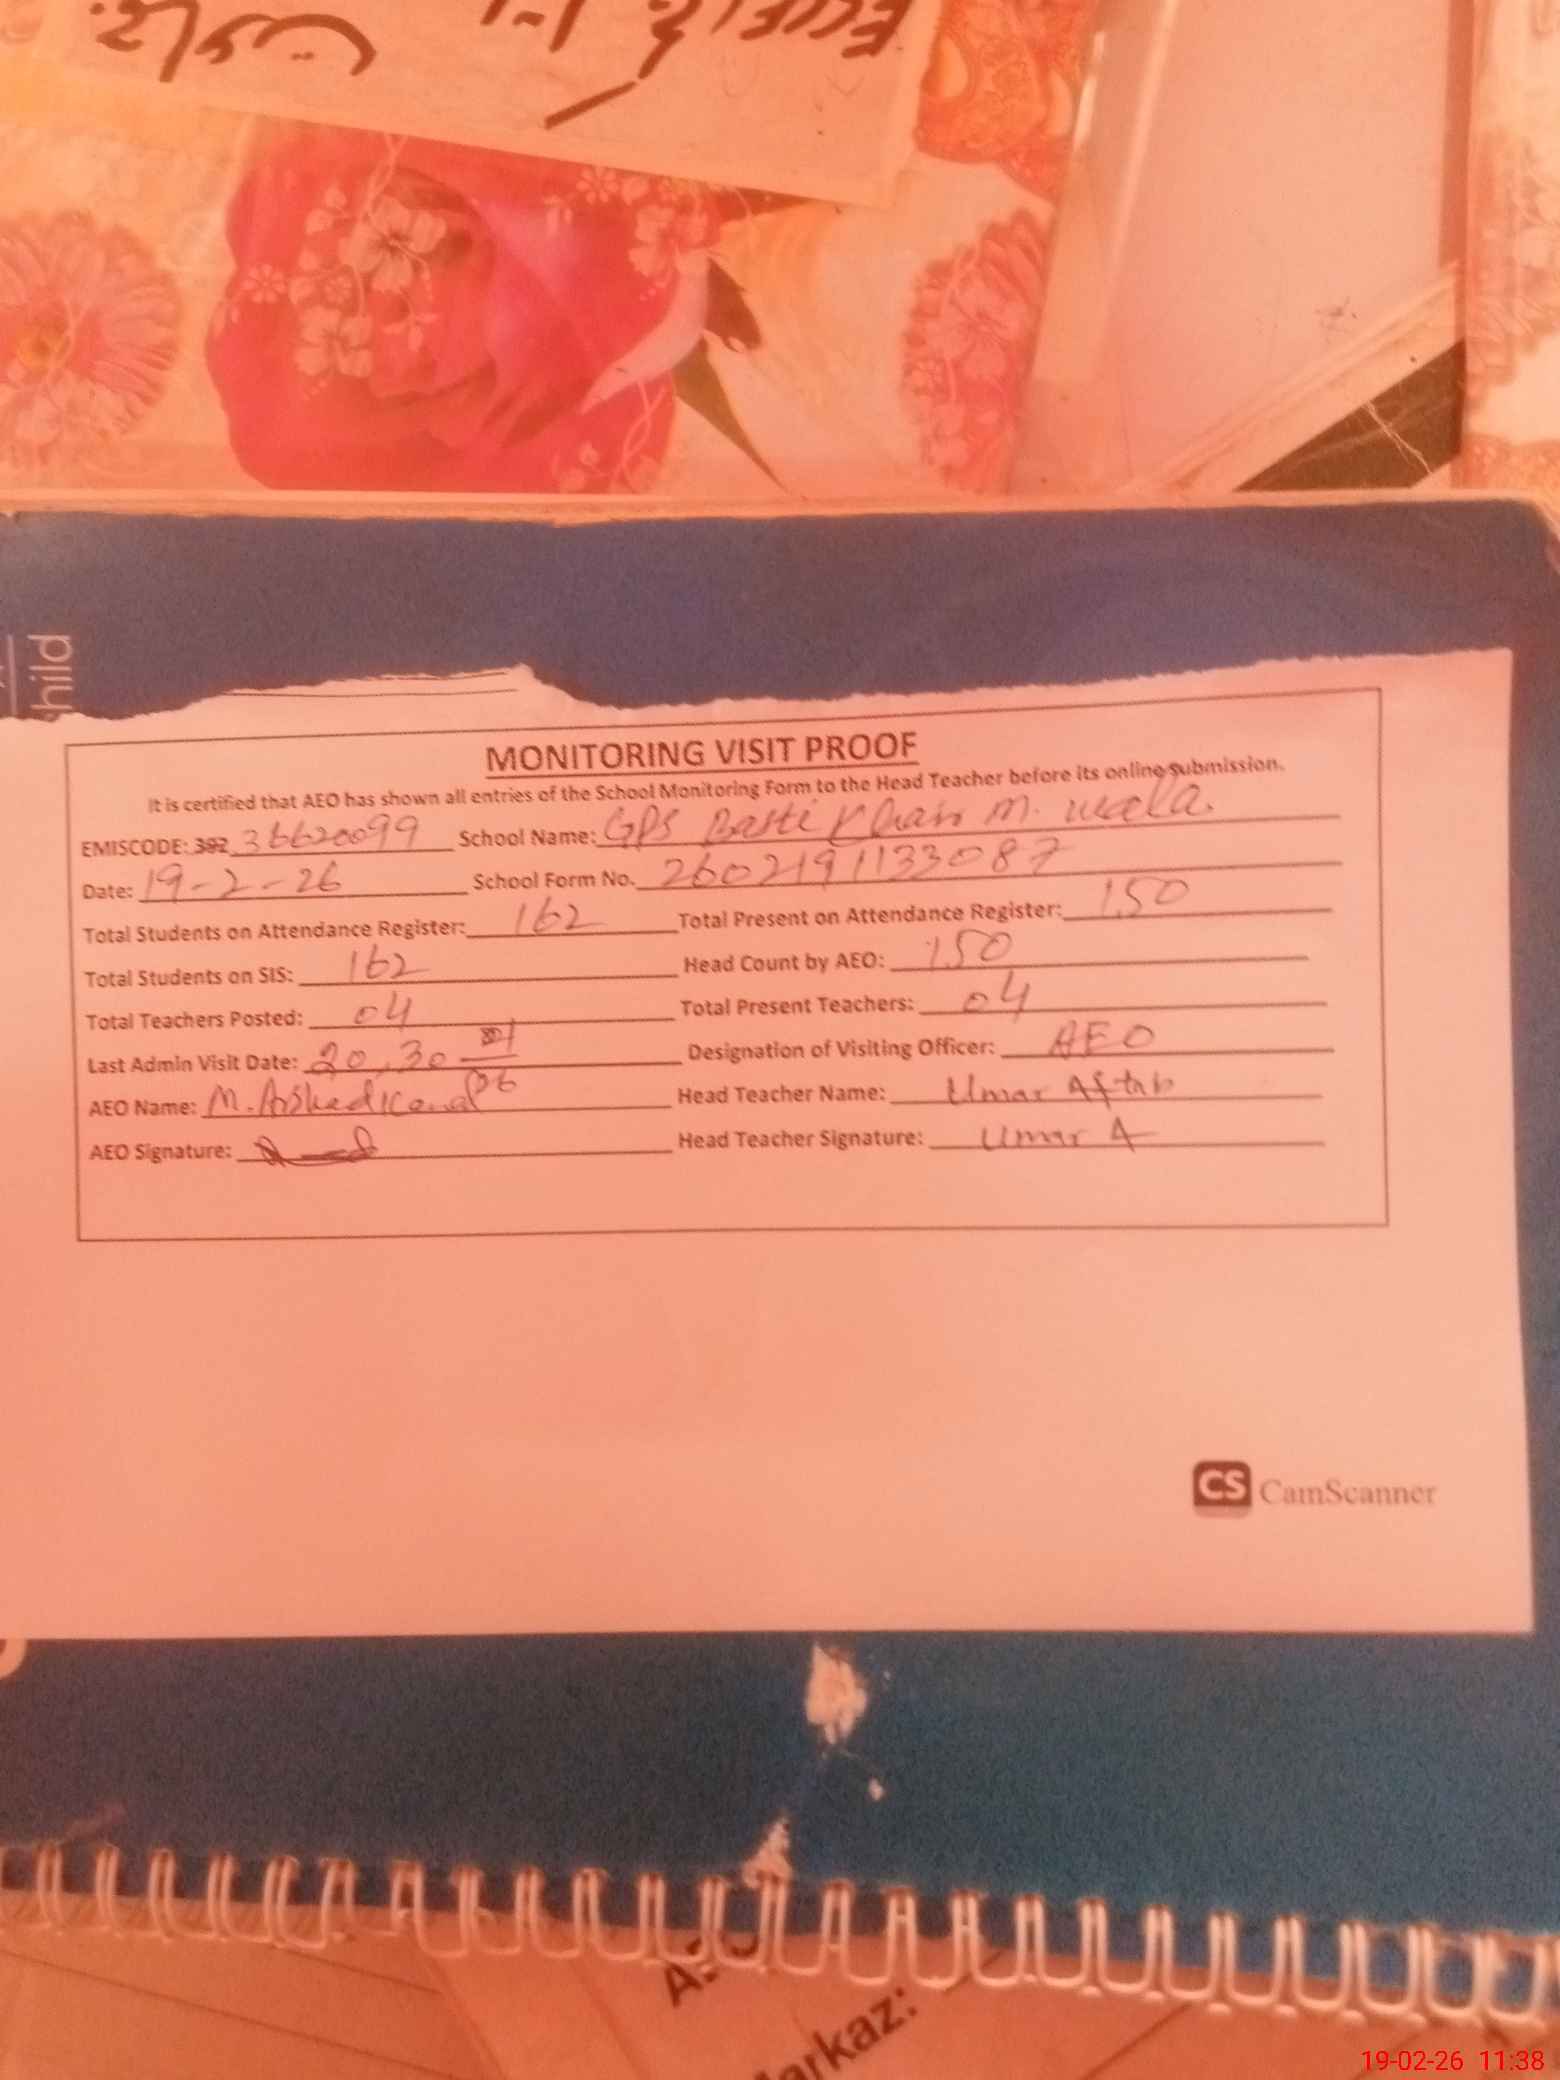 hild
MONITORING VISIT PROOF
It is certified that AEO has shown all entries of the School Monitoring Form to the Head Teacher before its online submission.
EMISCODE: 392 36620099 School Name: GPS Basti Khan M. wala.
Date: 19-2-26 School Form No. 260219113308 7
Total Students on Attendance Register: 162 Total Present on Attendance Register: 150
Total Students on SIS: 162 Head Count by AEO: 150
Total Teachers Posted: 04 Total Present Teachers: 04
Last Admin Visit Date: 20, 30 Designation of Visiting Officer: AEO
AEO Name: M. Head Teacher Name: Umar Aftab
AEO Signature: Head Teacher Signature: Umar A
CS CamScanner
Markaz:
19-02-26 11:38